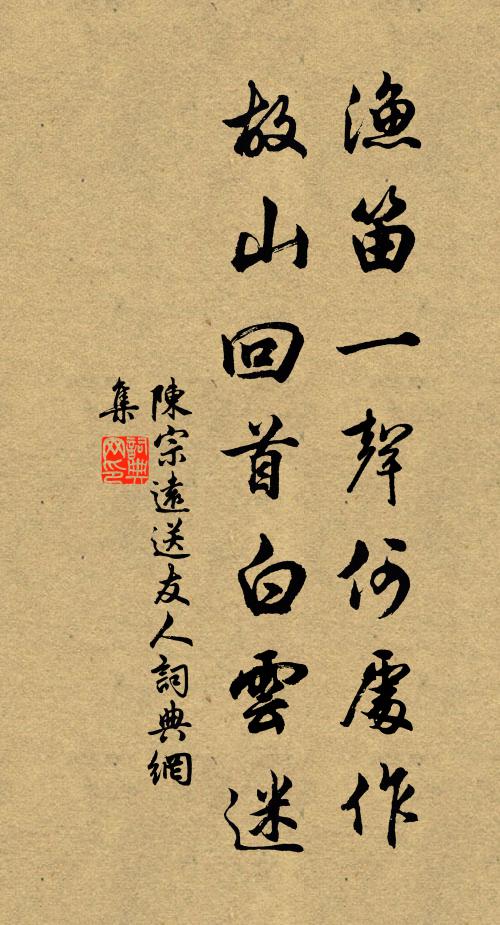 漁笛一聲何處作
故山回首白雲迷
陳宗遠送友人詞典網
集
詞典网印